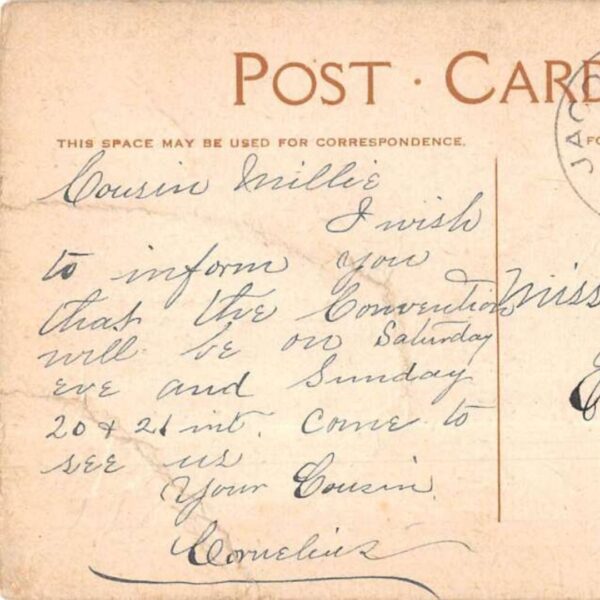 POST · CARD
THIS SPACE MAY BE USED FOR CORRESPONDENCE.
JACO
Cousin Millie
I wish
to inform you
that the Convention
will be on Saturday
eve and Sunday
20 & 21 int. Come to
see us
Your Cousin
Cornelius
Miss